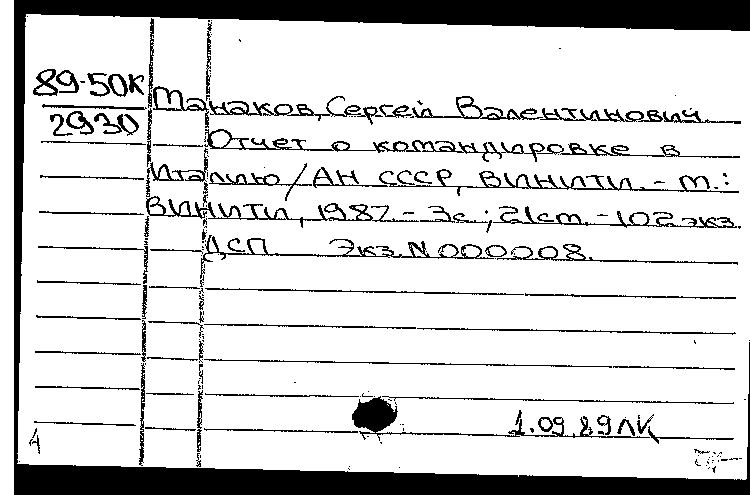 89-50К
2930
Манаков, Сергей Валентинович.
Отчет о командировке в
Италию / АН СССР, ВИНИТИ. - М.:
ВИНИТИ, 1987. - 3с.; 21см. - 102 экз.
ДСП. Экз. N 000008.
1.09.89ЛК
4